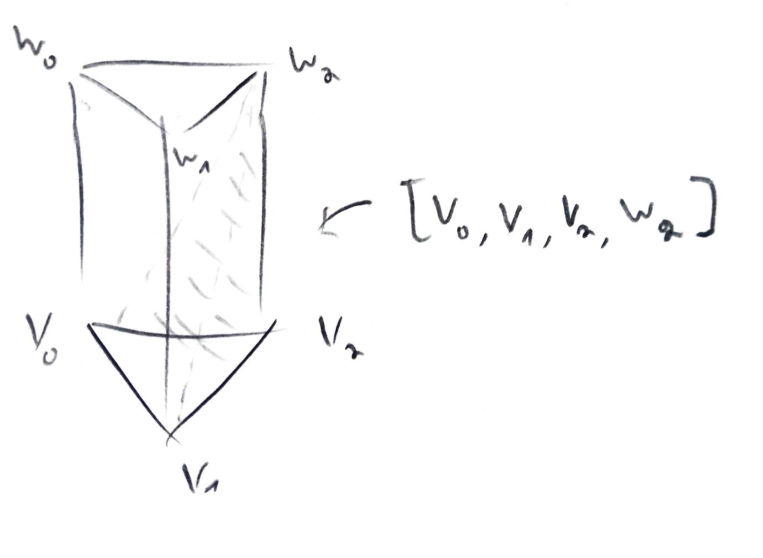 W₀ W₂
W₁
[V₀, V₁, V₂, W₂]
V₀ V₂
V₁